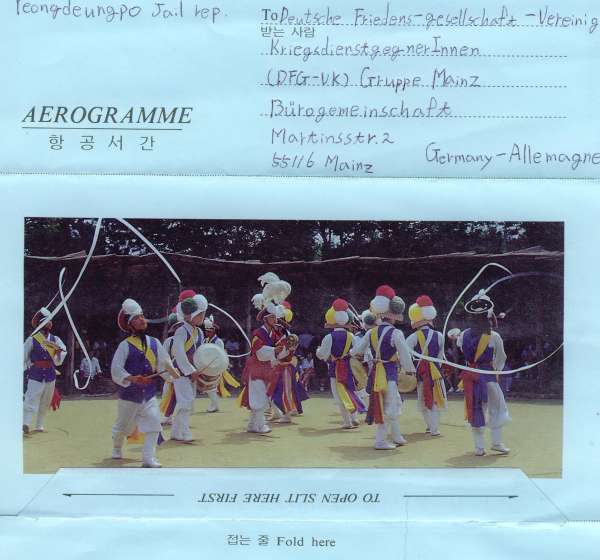 Yeongdeungpo Jail rep.
To Deutsche Friedens-gesellschaft-Vereinig
받는 사람
KriegsdienstgegnerInnen
(DFG-VK) Gruppe Mainz
AEROGRAMME
항공서간
Bürogemeinschaft
Martinsstr.2
55116 Mainz
Germany-Allemagne
TO OPEN SLIT HERE FIRST
접는 줄 Fold here